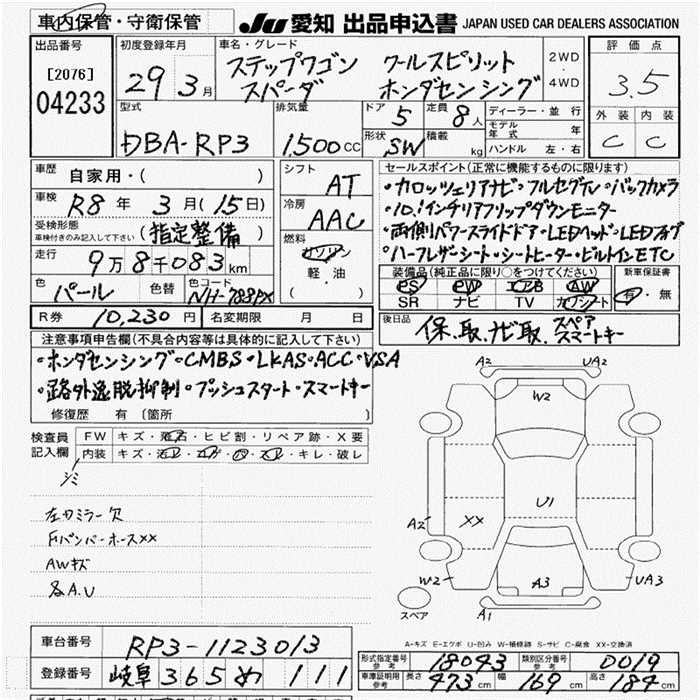 車内保管・守衛保管
JU 愛知 出品申込書 JAPAN USED CAR DEALERS ASSOCIATION
出品番号
[2076]
04233
初度登録年月
29 3月
車名・グレード
ステップワゴン クールスピリット
スパーダ ホンダセンシング
2WD
・
4WD
評価点
3.5
外装 内装
C C
型式
DBA-RP3
排気量
1,500CC
ドア 5
定員 8人
形状 SW
積載 kg
ディーラー・並行
モデル年式 年
ハンドル 左・右
車歴 自家用・( )
車検 R8年 3月(15日)
受検形態
車検付きのみ記入して下さい (指定整備)
走行 9万8千083km
色 パール 色替 色コード NH-788PX
シフト AT
冷房 AAC
燃料 ガソリン
軽・油
( )
セールスポイント(正常に機能するものに限ります)
・カロッツェリアナビ・フルセグTV・バックカメラ
・10.1インチリアフリップダウンモニター
・両側パワースライドドア・LEDヘッド・LEDフォグ
・ハーフレザーシート・シートヒーター・ビルトインETC
装備品(純正品に限り○をつけてください)
PS PW エアB AW
SR ナビ TV カワシート
新車保証書
有・無
R券 10,230円 名変期限 月 日
後日品 保.取.ナビ取.スペアスマートキー
注意事項申告欄(不具合内容等は具体的に記入して下さい)
・ホンダセンシング・CMBS・LKAS・ACC・VSA
・路外逸脱抑制・プッシュスタート・スマートキー
修復歴 有 〔箇所
検査員記入欄
FW キズ・飛石・ヒビ割・リペア跡・X要
内装 キズ・汚レ・コゲ・穴・スレ・キレ・破レ
シミ
左カミラー欠
FバンパーホースXX
AWキズ
各A.U
A2 UA2
W2
U1
A2 XX
W2 A3 UA3
スペア A1
A-キズ E-エクボ U-凹み W-補修跡 S-サビ C-腐食 XX-交換済
車台番号 RP3-1123013
登録番号 岐阜 365 め 111
形式指定番号参考 18043 類別区分番号参考 0019
車庫証明用参考 長さ 473cm 幅 169cm 高さ 184cm